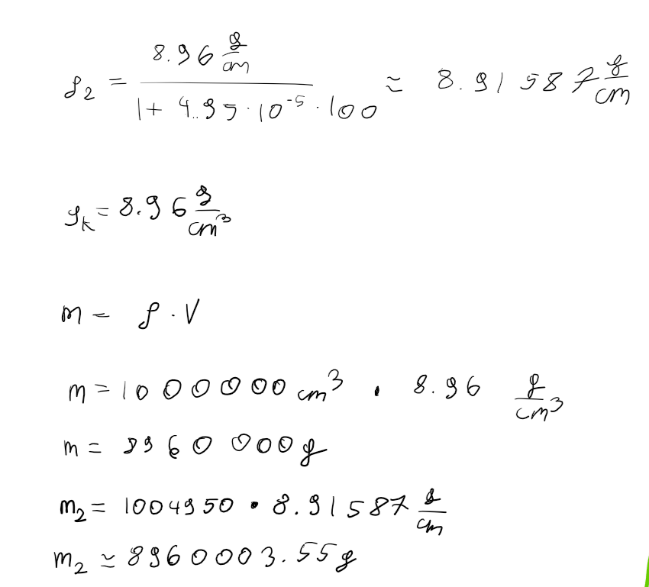 ρ₂ = 8.96 g/cm / 1 + 4.95 · 10⁻⁵ · 100 ≈ 8.91587 g/cm
ρₖ = 8.96 g/cm³
m = ρ · V
m = 1000000 cm³ · 8.96 g/cm³
m = 8960000 g
m₂ = 1004950 · 8.91587 g/cm
m₂ ≈ 8960003.55 g